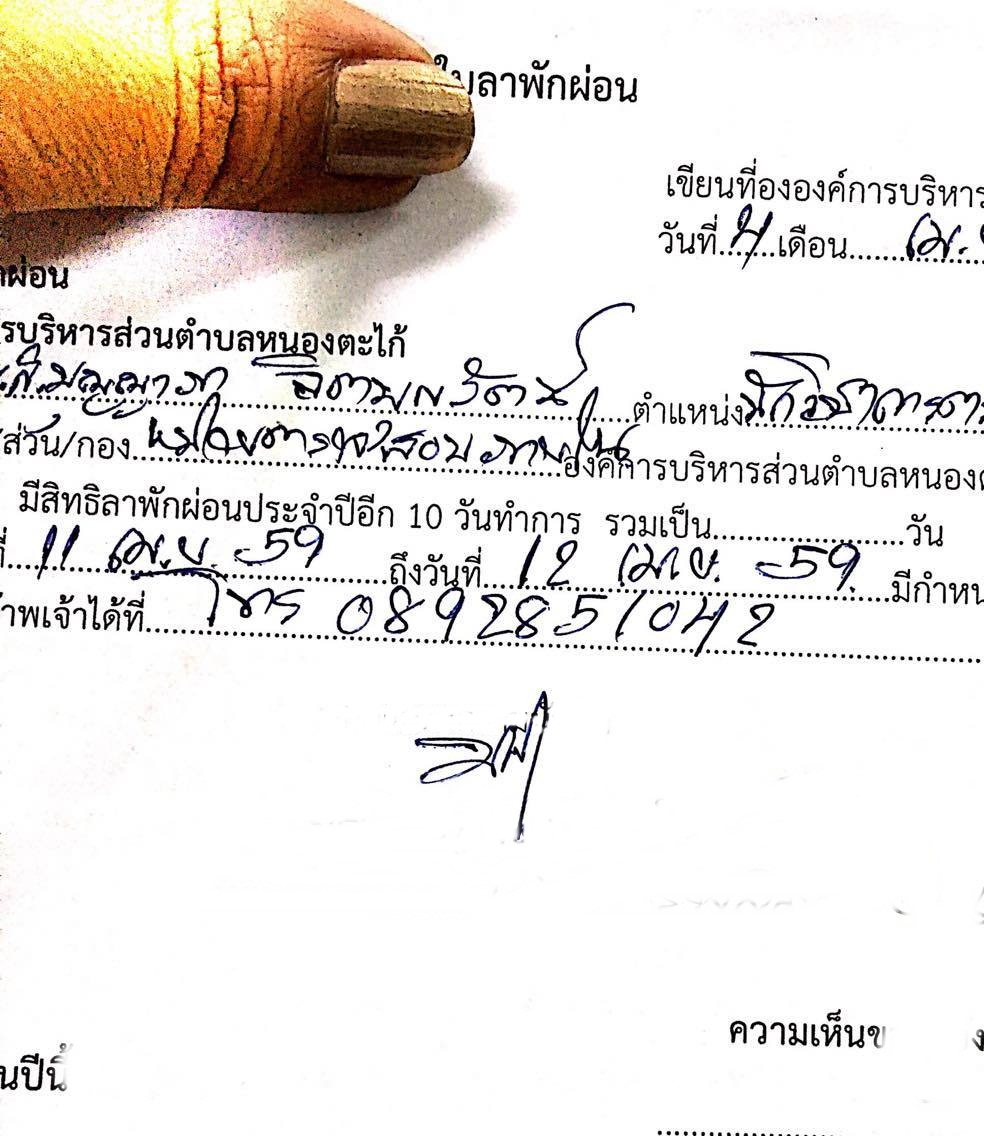 ใบลาพักผ่อน
เขียนที่ององค์การบริหาร
วันที่ 4 เดือน เม.
ผ่อน
รบริหารส่วนตำบลหนองตะไก้
ตำแหน่ง นักวิชาการ
ส่วน/กอง หน่วยตรวจสอบภายใน องค์การบริหารส่วนตำบลหนอง
มีสิทธิลาพักผ่อนประจำปีอีก 10 วันทำการ รวมเป็น วัน
ที่ 11 เม.ย. 59 ถึงวันที่ 12 เม.ย. 59 มีกำหน
าพเจ้าได้ที่ โทร 0892851042
ความเห็นข
นปีนี้